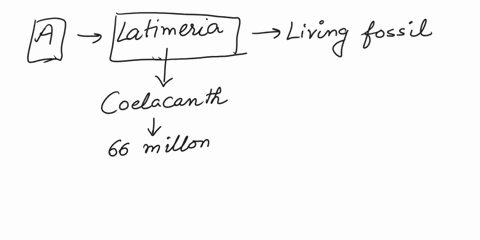 A → Latimeria → Living fossil
Coelacanth
66 millon